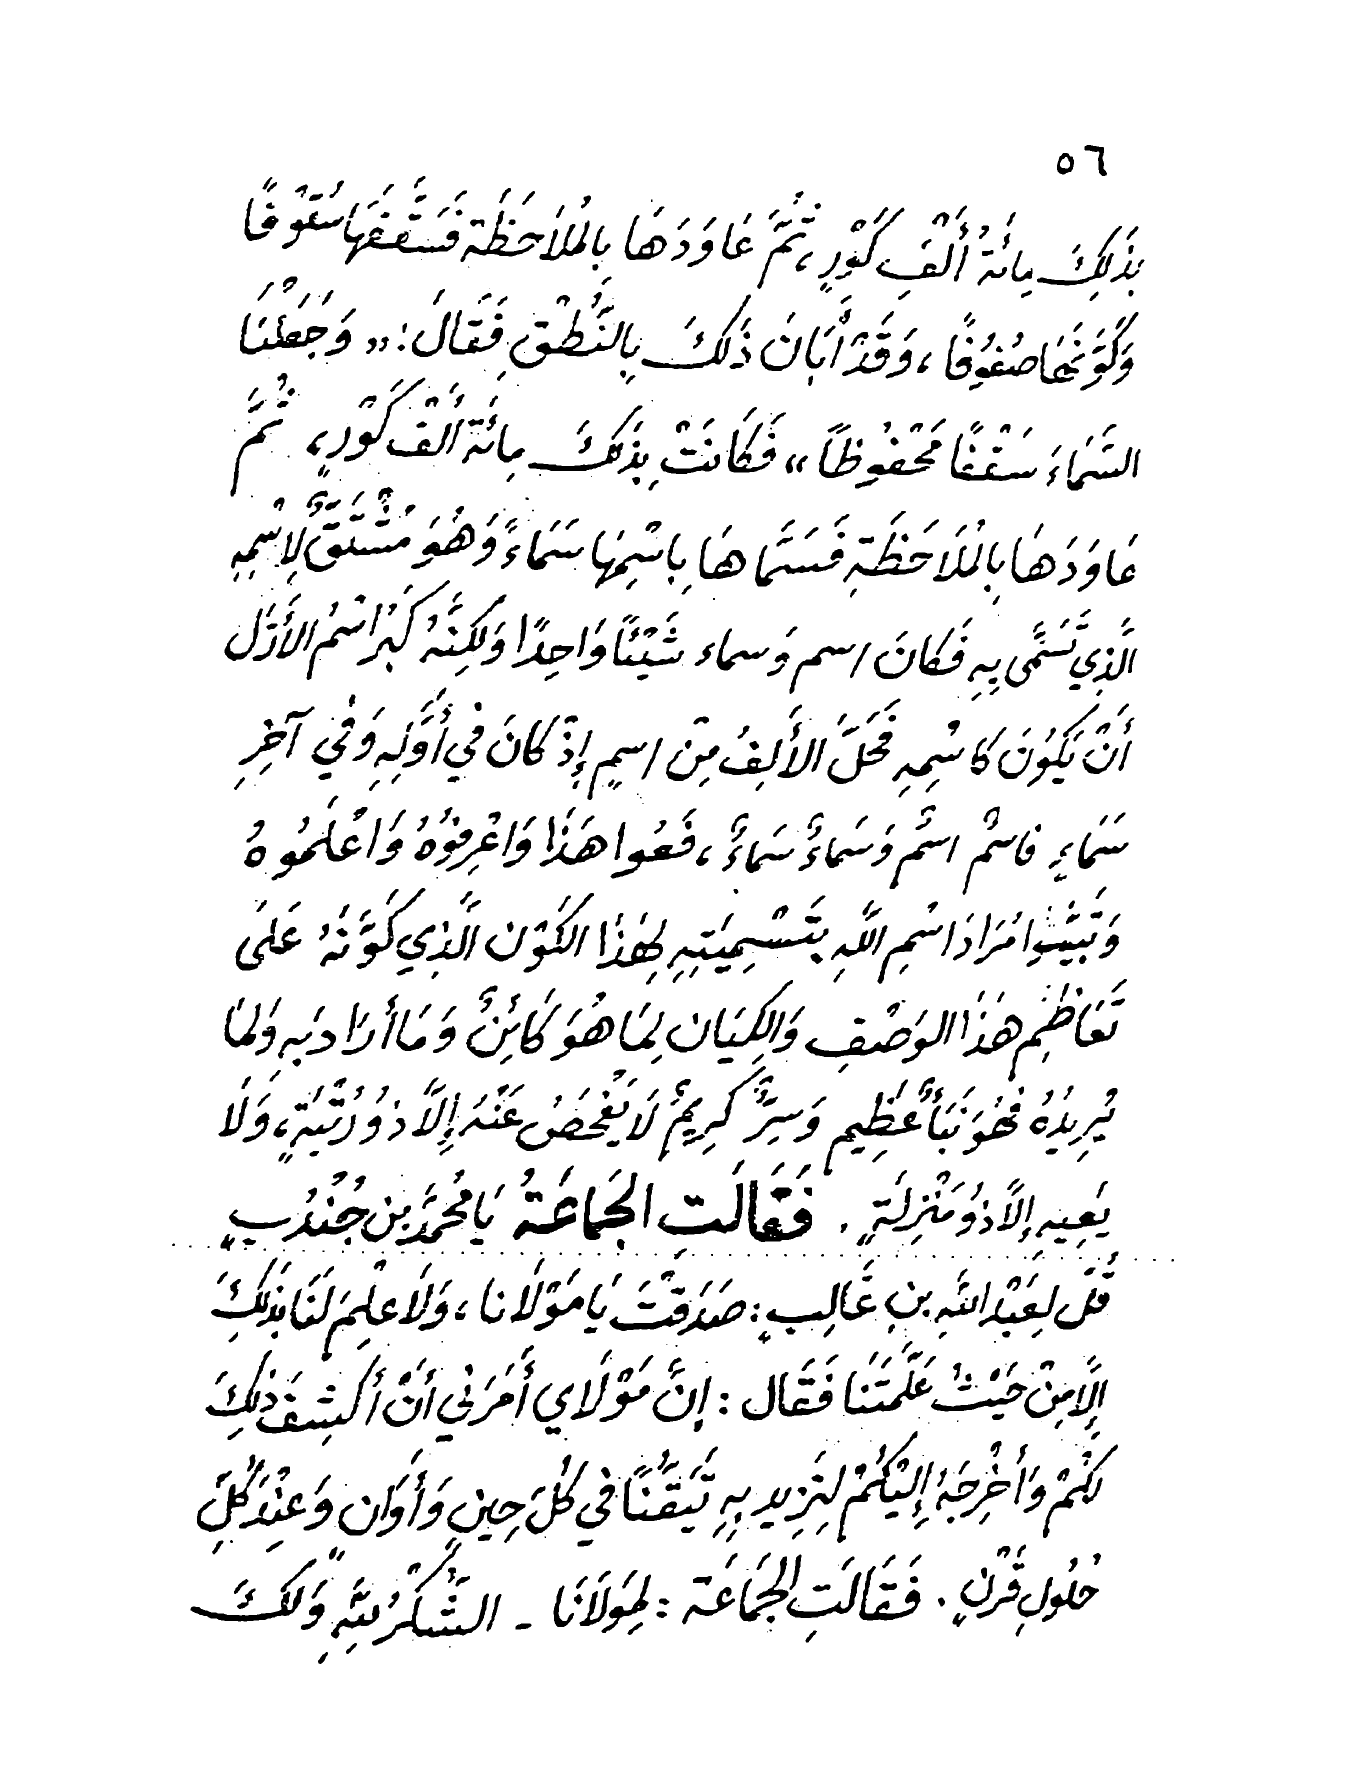 ٥٦
بِذَلِكَ مِائَةُ أَلْفِ كَوْرٍ، ثُمَّ عَاوَدَهَا بِالمُلاَحَظَة فَسَقَّفَهَا سُقُوفًا
وَكَوَّنَهَا صُفُوفًا، وَقَدْ أَبَانَ ذَلكَ بِالنُّطْقِ فَقَالَ: «وَجَعَلْنَا
السَّمَاءَ سَقْفًا مَحْفُوظًا» فَكَانَتْ بِذَلكَ مِائَةَ أَلْف كَوْرٍ، ثُمَّ
عَاوَدَهَا بِالْمُلَاحَظَةِ فَسَمَّاهَا بِاسْمِهَا سَمَاءً وَهُوَ مُشْتَقٌّ لِاسْمِهِ
الَّذِي تَسَمَّى بِهِ فَكانَ اسم وَسماء شَيْئًا وَاحِدًا وَلكِنَّهُ كَبُرَ اسْمُ الأَوَّل
أَنْ يَكُونَ كاسْمِهِ فَحَلَّ الأَلِفُ مِنْ اسمٍ إِذْ كانَ في أَوَّلِهِ وَفي آخِرِ
سَمَاءٍ فاسْم اسْم وَسَماءٌ سَماءٌ، فَعُوا هَذَا وَاعْرِفُوْهُ وَاعْلَمُوهُ
وَتَبَيَّنُوا مُرَادَ اسْمِ اللَّهِ بِتَسْمِيَتِهِ لِهَذَا الكَوْن الَّذِي كَوَّنَهُ عَلَى
تَعَاظُمِ هَذَا الوَصْفِ وَالكِيَان لِمَا هُوَ كَائِنٌ وَمَا أَرَادَ بِهِ وَلمَا
يُرِيدُهُ فَهُوَ نَبَأٌ عَظِيم وَسِرٌّ كَرِيمٌ لَا يَفْحَصُ عَنْهُ إِلاَّ ذُو رُتْبَةٍ، وَلَا
يَعِيهِ إِلاَّ ذُو مَنْزِلَةٍ. فَقَالَتِ الجَمَاعَةُ يَا مُحَمَّدَ بن جُنْدُبٍ
قُل لِعَبْدِ اللهِ بنِ غَالِبٍ: صَدَقْتَ يَا مَوْلَانا، وَلَا عِلْمَ لَنَا بِذَلِكَ
إِلَّا مِنْ حَيْثُ عَلَّمَتَنَا فَقَال: إِنَّ مَوْلَاي أَمَرَني أَنْ أَكشِفَ ذلِكَ
لَكُمْ وَأُخْرِجَهُ إِلَيْكُمْ لِنَزِيدِ بِهِ تَيَقُّنًا في كُلِّ حِينٍ وَأَوَانٍ وَعِنْدَ كُلِّ
حُلُولِ قَرْنٍ. فَقَالَتِ الجَمَاعَة: لِمَوْلَانَا - الشُّكْرُ للهِ وَلَكَ